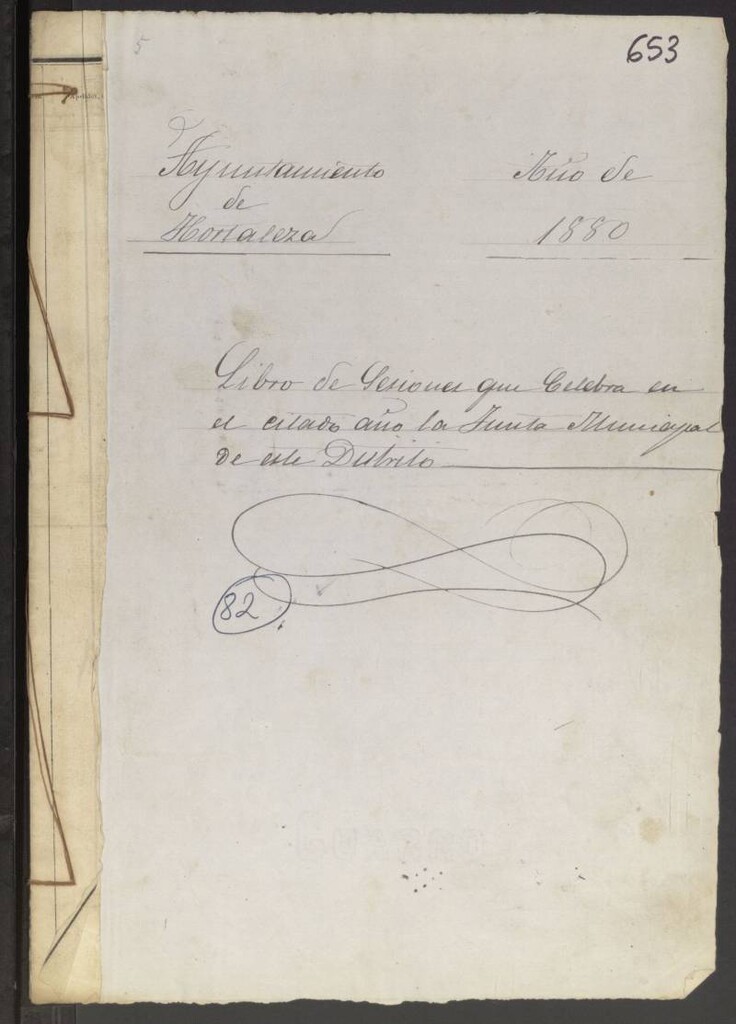 653
Ayuntamiento
de
Hortaleza
Año de
1880
Libro de Sesiones que Celebra en
el citado año la Junta Municipal
de este Distrito
82